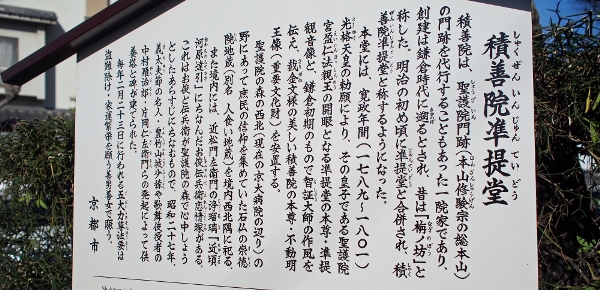 積善院準提堂
しゃくぜんいんじゅんていどう
積善院は、聖護院門跡(本山修験宗の総本山)
の門跡を代行することもあった「院家であり、
創建は鎌倉時代に遡るとされ、昔は「梅ノ坊」と
称した。明治の初め頃に準提堂と合併され、積
善院準提堂と称するようになった。
本堂には、寛政年間(一七八九～一八〇一)
光格天皇の勅願により、その皇子である聖護院
宮盈仁法親王の開眼となる準提堂の本尊・準提
観音像と、鎌倉初期のもので智証大師の作風を
伝え、截金文様の美しい積善院の本尊・不動明
王像(重要文化財)を安置する。
聖護院の森の西北(現在の京大病院の辺り)の
野にあって庶民の信仰を集めていた石仏の崇徳
院地蔵(別名 人食い地蔵)を境内西北隅に祀る。
また境内には、近松門左衛門の浄瑠璃「近頃
河原達引」にちなんだお俊伝兵衛恋情塚がある。
これはお俊と伝兵衛が聖護院の森で心中しよう
としたあらすじにちなむもので、昭和二十七年、
義太夫節の名人・豊竹山城少掾や歌舞伎役者の
中村雁治郎・片岡仁左衛門らの発起によって供
養塔と碑が建てられた。
毎年二月二十三日に行われる五大力尊法要は
盗難除け・家運繁栄を願う善男善女で賑う。
京都市